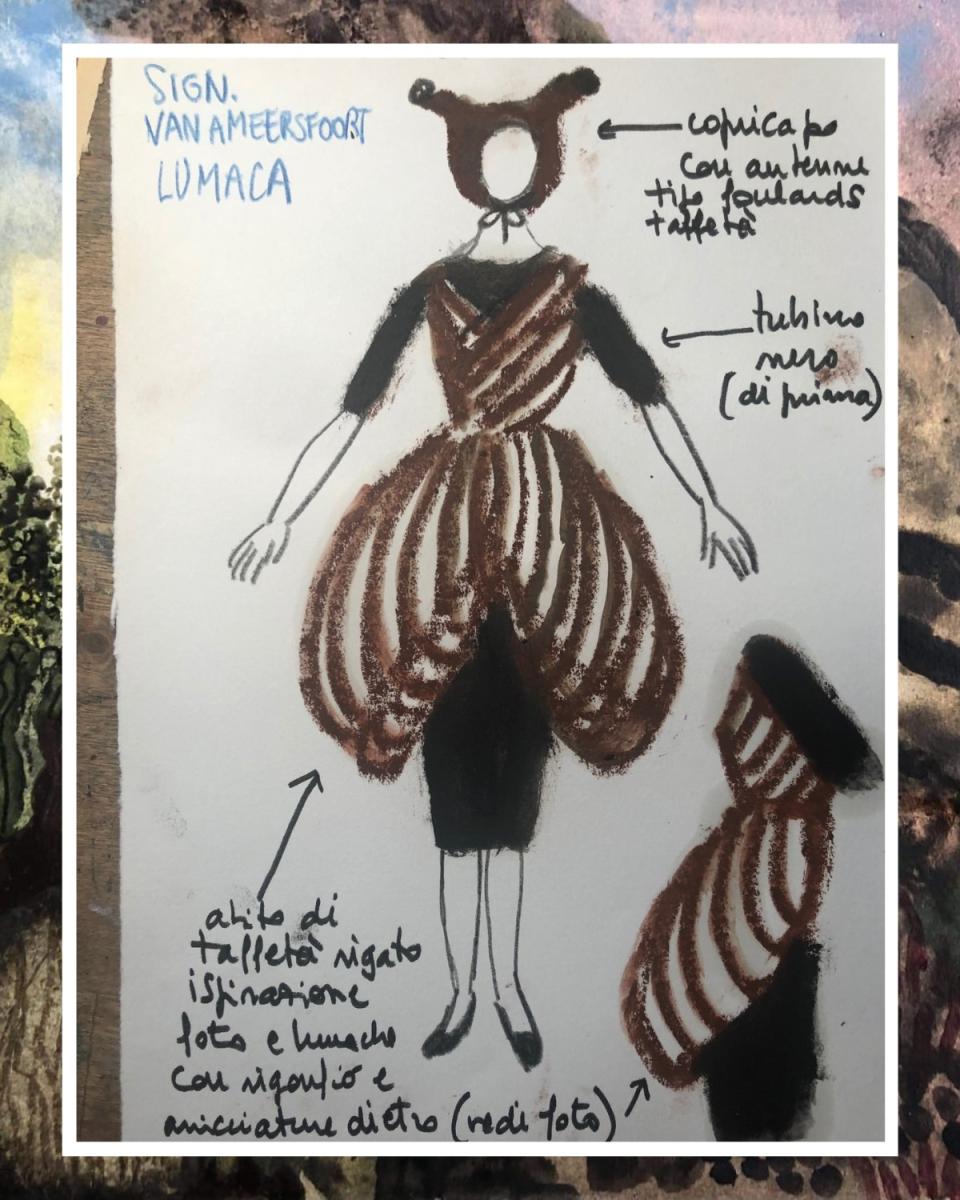 SIGN.
VAN AMEERSFOORT
LUMACA
copricapo
con antenne
tipo foulards
taffetà
tubino
nero
(di prima)
abito di
taffetà rigato
ispirazione
foto e lumache
con rigonfio e
arricciature dietro (vedi foto)